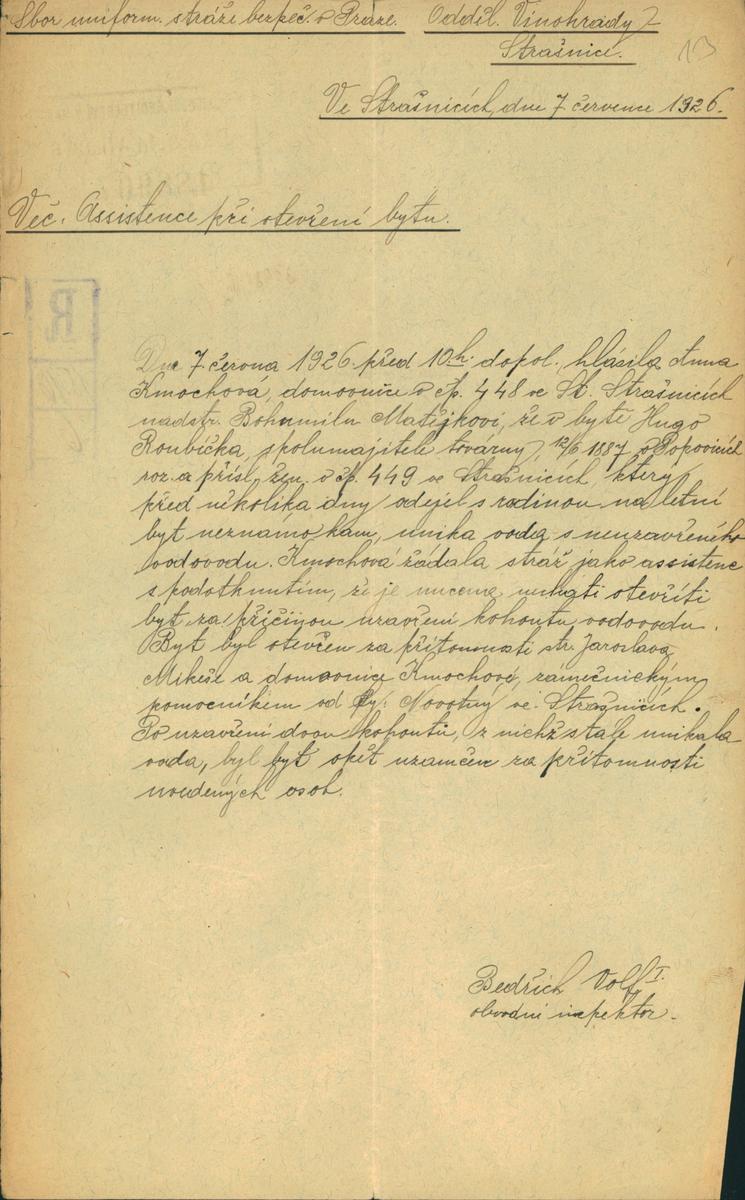 Sbor uniform. stráže bezpeč. v Praze. Odděl. Vinohrady
Strašnice.
13
Ve Strašnicích, dne 7 července 1926.
Věc. Assistence při otevření bytu.
Dne 7. června 1926 před 10h. dopol. hlásila Anna
Kmochová, domovnice v čp. 448 ve St. Strašnicích
nadstr. Bohumilu Matějkovi, že v bytě Hugo
Roubíčka, spolumajitele továrny, 12/6 1887 v Popovicích
roz. a přísl., žen. v čp. 449 ve Strašnicích, který
před několika dny odejel s rodinou na letní
byt neznámo kam, uniká voda s neuzavřeného
vodovodu. Kmochová žádala stráž jako assistenc
s podotknutím, že je nucena nechati otevříti
byt za příčinou uzavření kohoutu vodovodu.
Byt byl otevřen za přítomnosti str. Jaroslava
Mikeše a domovnice Kmochové, zámečnickým
pomocníkem od fy: Novotný ve Strašnicích.
Po uzavření dvou kohoutů, z nichž stále unikala
voda, byl byt opět uzamčen za přítomnosti
uvedených osob.
Bedřich Volf I.
obvodní inspektor.